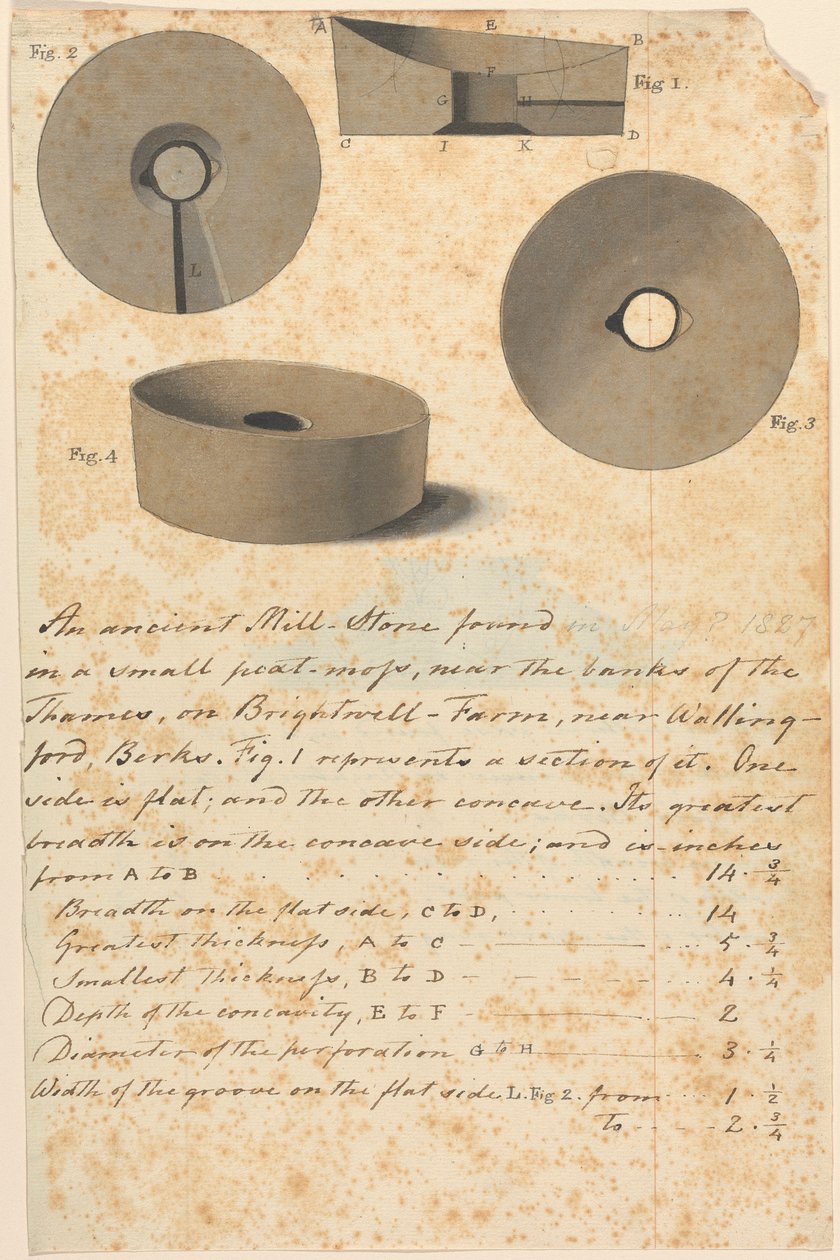 A
E
B
Fig. 2
F
Fig 1.
G
H
C
I
K
D
L
Fig. 3
Fig. 4
An ancient Mill-Stone found in May 1827
in a small peat-moſs, near the banks of the
Thames, on Brightwell-Farm, near Walling-
ford, Berks. Fig. 1 represents a section of it. One
side is flat; and the other concave. Its greatest
breadth is on the concave side; and is inches
from A to B 14 3/4
Breadth on the flat side, C to D, 14
Greatest thickneſs, A to C 5 3/4
Smallest Thickneſs, B to D 4 1/4
Depth of the concavity, E to F 2
Diameter of the perforation G to H 3 1/4
Width of the groove on the flat side L. Fig 2. from 1 1/2
to 2 3/4